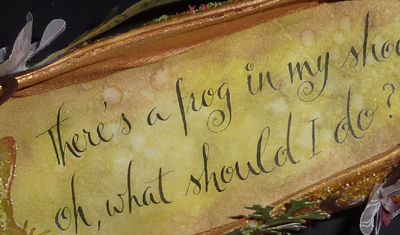 There's a frog in my shoe
oh, what should I do?